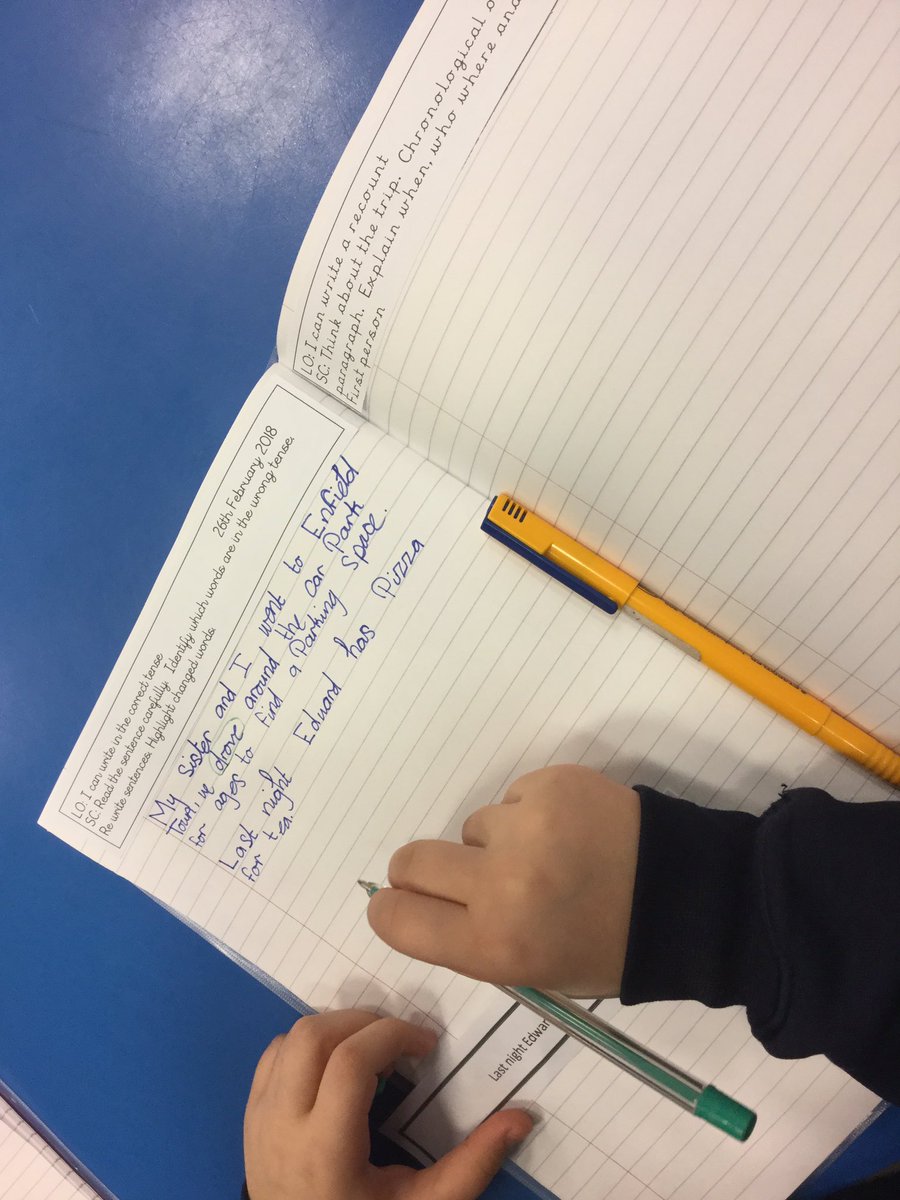 26th February 2018
LO: I can write in the correct tense
SC: Read the sentence carefully. Identify which words are in the wrong tense.
Re write sentences. Highlight changed words.
My sister and I went to Enfield
Town, we drove around the car Park
for ages to find a Parking Space.
Last night Edward has Pizza
for tea.
Last night Edwar
LO: I can write a recount
SC: Think about the trip. Chronological
paragraph. Explain when, who where and
First person